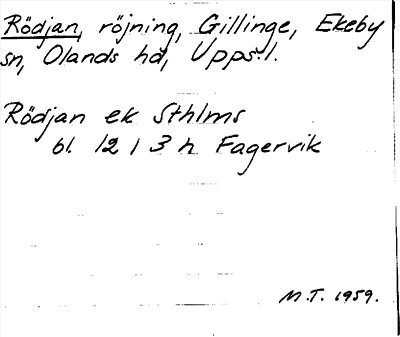 Rödjan, röjning, Gillinge, Ekeby
sn, Olands hd, Upps.l.
Rödjan ek Sthlms
bl. 12 1 3 h Fagervik
M.T. 1959.